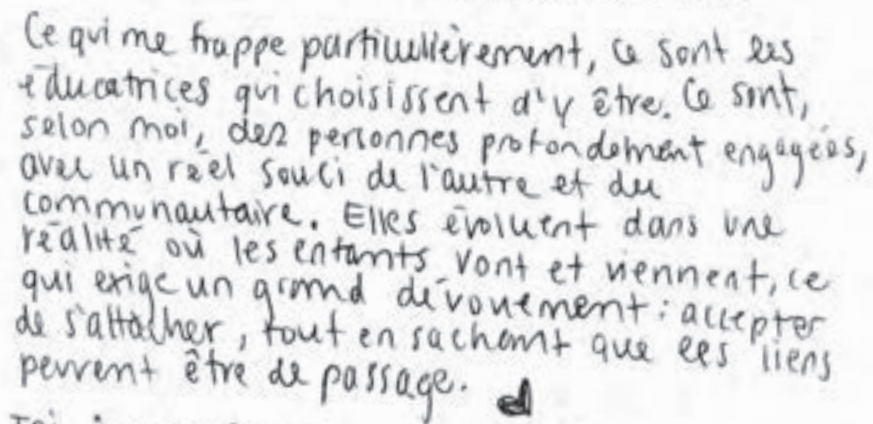 Ce qui me frappe particulièrement, ce sont les
éducatrices qui choisissent d'y être. Ce sont,
selon moi, des personnes profondément engagées,
avec un réel souci de l'autre et du
communautaire. Elles évoluent dans une
réalité où les enfants vont et viennent, ce
qui exige un grand dévouement : accepter
de s'attacher, tout en sachant que ces liens
peuvent être de passage.